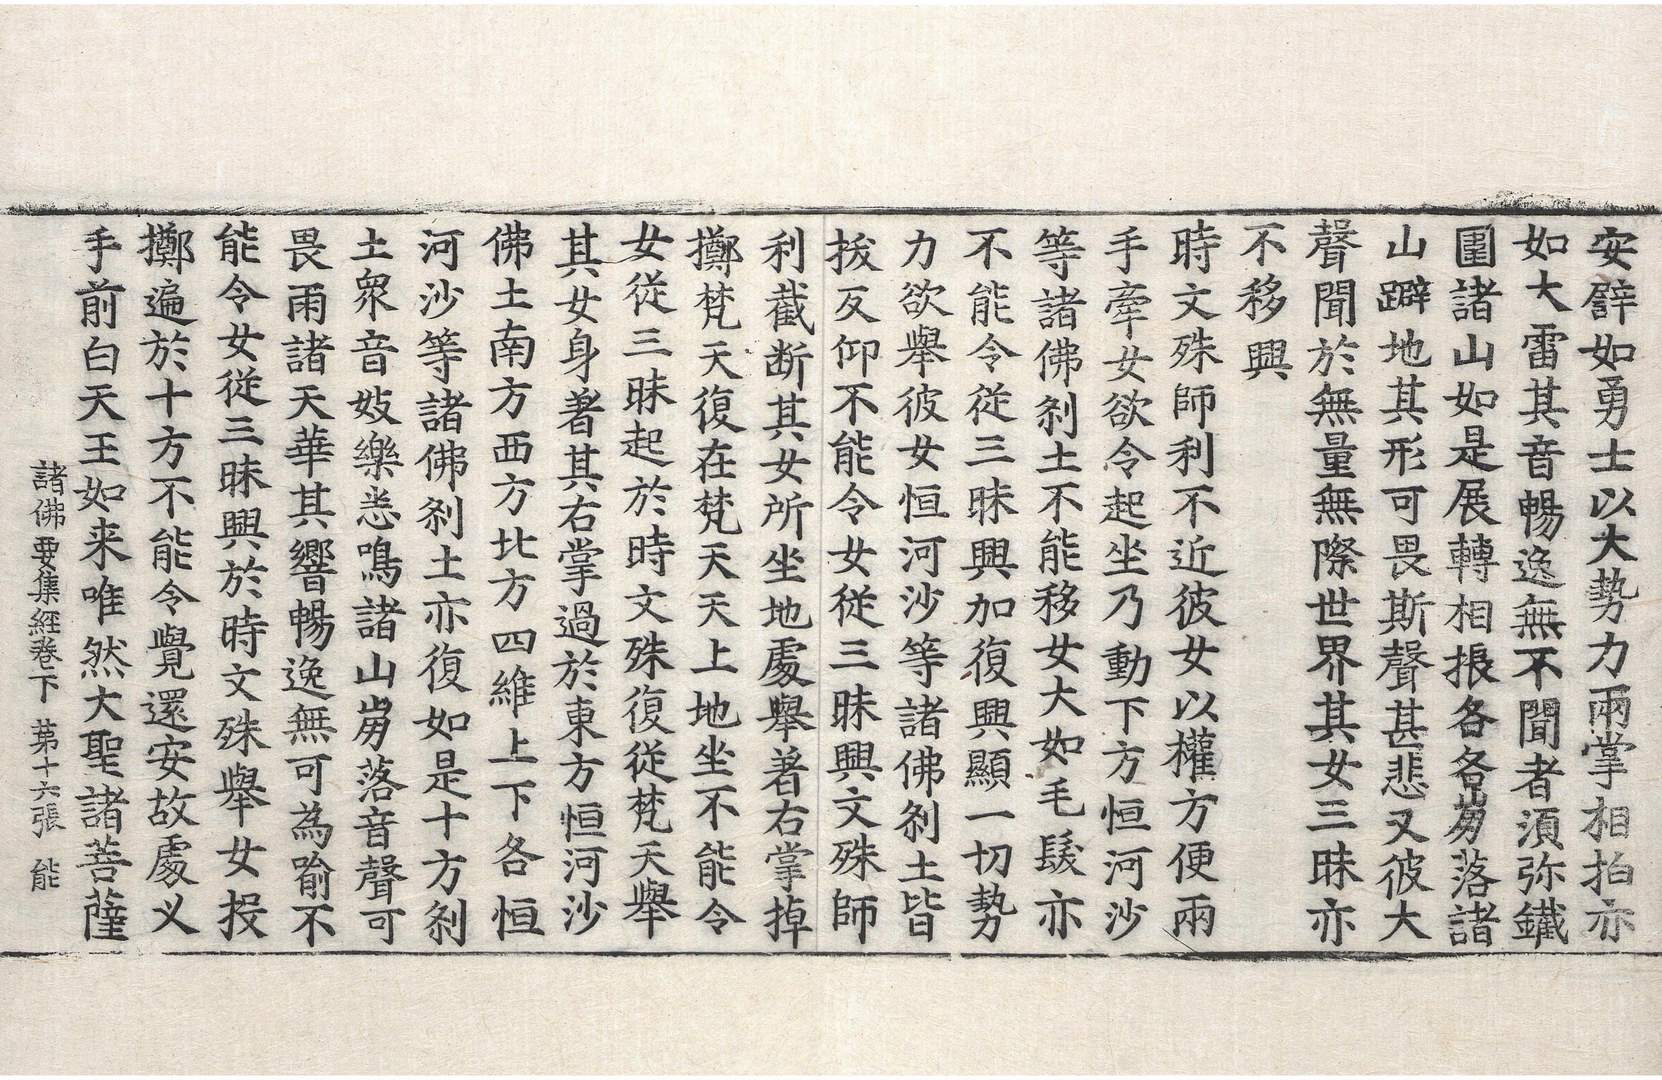 安譬如勇士以大勢力兩掌相拍亦
如大雷其音暢逸無不聞者湏弥鐵
圍諸山如是展轉相振各各崩落諸
山躃地其形可畏斯聲甚悲又彼大
聲聞於無量無際世界其女三昧亦
不移興
時文殊師利不近彼女以權方便兩
手牽女欲令起坐乃動下方恒河沙
等諸佛剎土不能移女大如毛髮亦
不能令從三昧興加復興顯一切勢
力欲舉彼女恒河沙等諸佛剎土皆
拔反仰不能令女從三昧興文殊師
利截断其女所坐地處舉著右掌掉
擲梵天復在梵天天上地坐不能令
女從三昧起於時文殊復從梵天舉
其女身著其右掌過於東方恒河沙
佛土南方西方北方四維上下各恒
河沙等諸佛剎土亦復如是十方剎
土衆音妓樂悉鳴諸山崩落音聲可
畏雨諸天華其響暢逸無可為喻不
能令女從三昧興於時文殊舉女投
擲遍於十方不能令覺還安故處义
手前白天王如来唯然大聖諸菩薩
諸佛要集経卷下 苐十六張 能